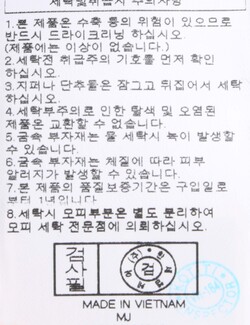 세탁및취급시 주의사항
1.본 제품은 수축 등의 위험이 있으므로
반드시 드라이크리닝 하십시오.
(제품에는 이상이 없습니다.)
2.세탁전 취급주의 기호를 먼저 확인
하십시오.
3.지퍼나 단추물은 잠그고 뒤집어서 세탁
하십시오.
4.세탁부주의로 인한 탈색 및 오염된
제품은 교환할 수 없습니다.
5.금속 부자재는 물 세탁시 녹이 발생할
수 있습니다.
6.금속 부자재는 체질에 따라 피부
알러지가 발생할 수 있습니다.
7.본 제품의 품질보증기간은 구입일로
부터 1년입니다.
8.세탁시 모피부분은 별도 분리하여
모피 세탁 전문점에 의뢰하십시오.
검사필
(주)
검
MADE IN VIETNAM
MJ